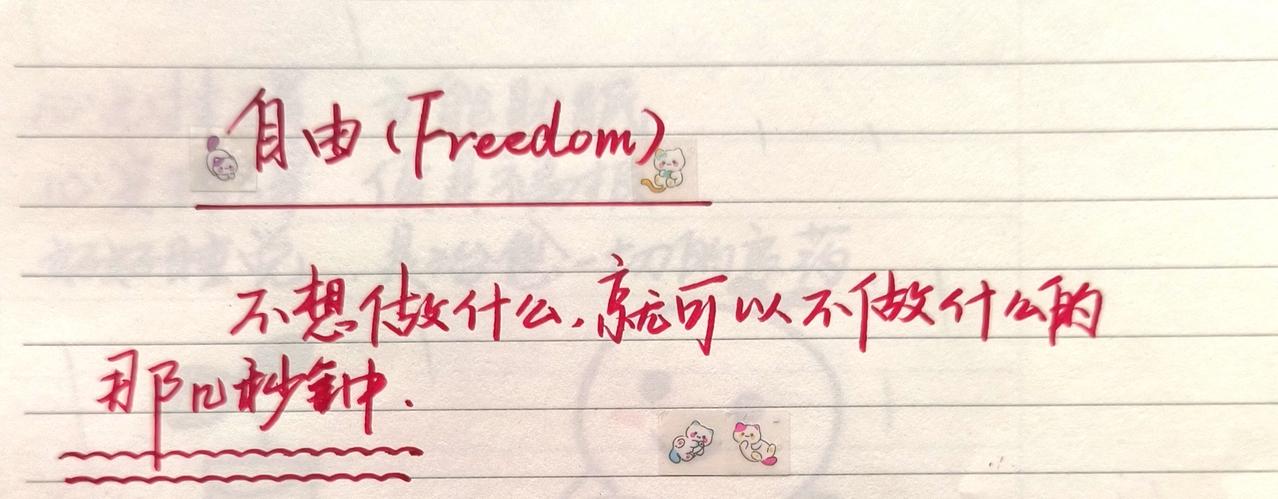 自由(Freedom)
不想做什么,就可以不做什么的
那几秒钟.